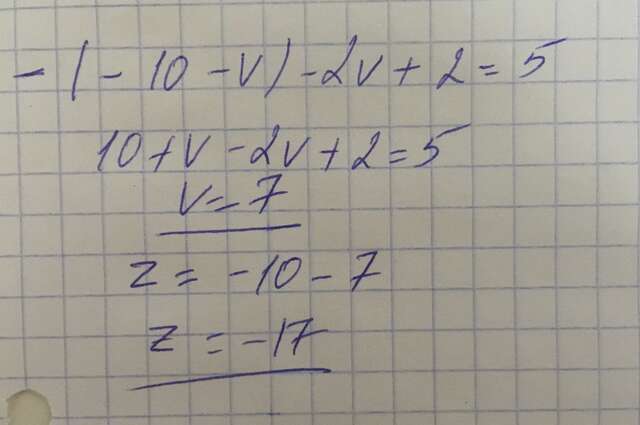 - (- 10 - v) - 2v + 2 = 5
10 + v - 2v + 2 = 5
v = 7
z = -10 - 7
z = -17